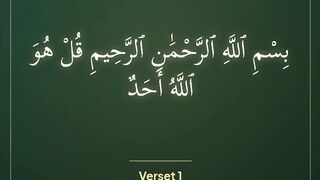 بِسْمِ ٱللَّهِ ٱلرَّحْمَٰنِ ٱلرَّحِيمِ قُلْ هُوَ
ٱللَّهُ أَحَدٌ
Verset 1